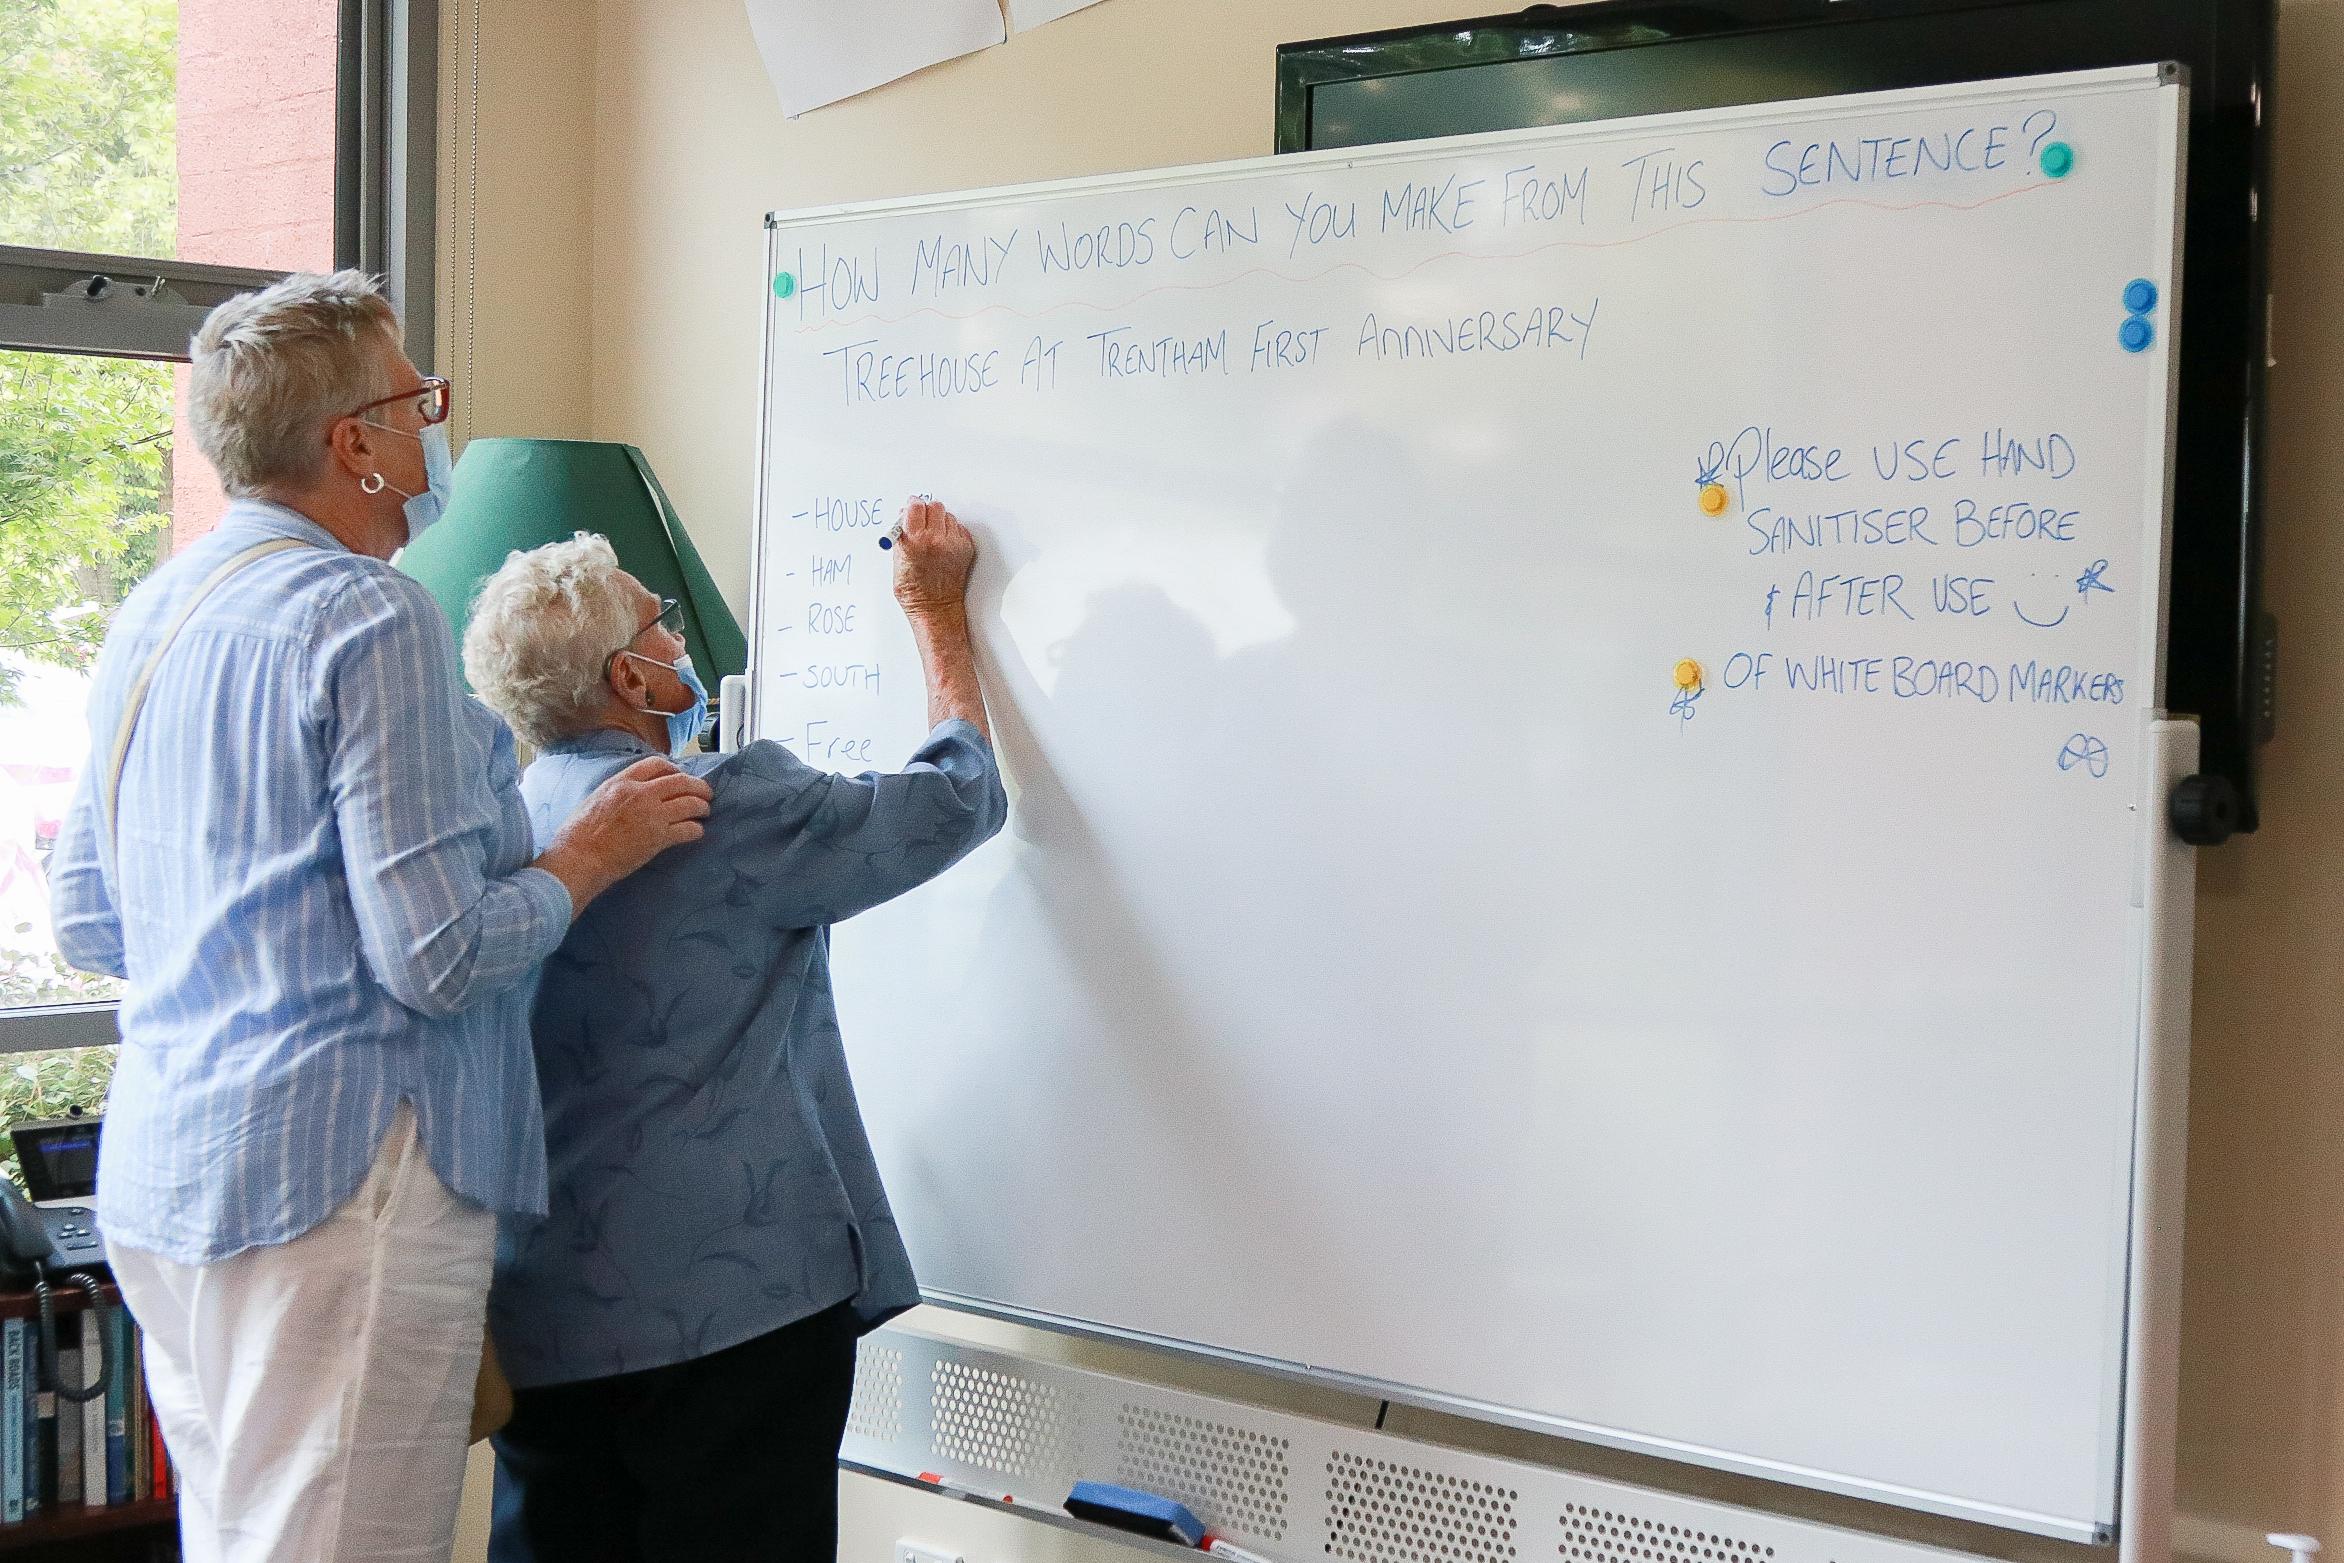 HOW MANY WORDS CAN YOU MAKE FROM THIS SENTENCE?
TREEHOUSE AT TRENTHAM FIRST ANNIVERSARY
- HOUSE
- HAM
- ROSE
- SOUTH
- Free
Please USE HAND
SANITISER BEFORE
& AFTER USE
OF WHITE BOARD MARKERS
BACK ROADS